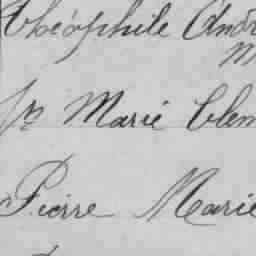 Théophile André
Marie Clem
Pierre Marie